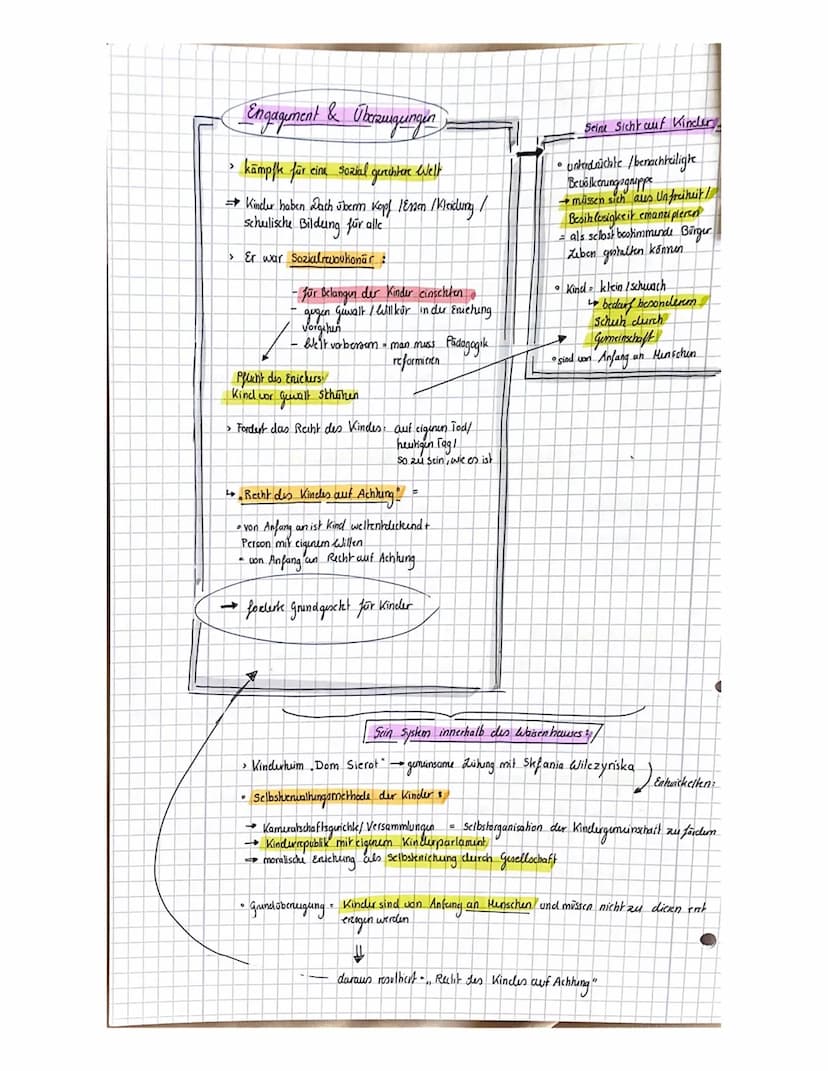 Engagement & Überzeugungen
> kämpfte für eine sozial gerechtere Welt
⇒ Kinder haben Dach überm Kopf / Essen / Kleidung /
schulische Bildung für alle
> Er war Sozialrevolutionär:
- für Belangen der Kinder einsetzten
- gegen Gewalt / Willkür in der Erziehung
vorgehen
- Welt verbessern = man muss Pädagogik
reformieren
Pflicht des Erziehers:
Kind vor Gewalt schützen
> Fordert das Recht des Kindes: auf eigenen Tod /
heutigen Tag /
so zu sein, wie es ist
↳ "Recht des Kindes auf Achtung" =
• von Anfang an ist Kind weltentdeckend +
Person mit eigenem Willen
• von Anfang an Recht auf Achtung
→ forderte Grundgesetzt für Kinder
Seine Sicht auf Kinder
• unterdrückte / benachteiligte
Bevölkerungsgruppe
→ müssen sich aus Unfreiheit /
Besitzlosigkeit emanzipieren
= als selbst bestimmende Bürger
Leben gestalten können
• Kind = klein / schwach
↳ bedarf besonderem
Schutz durch
Gemeinschaft
• sind von Anfang an Menschen
Sein System innerhalb des Waisenhauses:
> Kinderheim "Dom Sierot" → gemeinsame Leitung mit Stefania Wilczyńska
Entwickelten:
• Selbstverwaltungsmethode der Kinder:
→ Kameradschaftsgerichte / Versammlungen = Selbstorganisation der Kindergemeinschaft zu fördern
→ Kinderrepublik mit eigenem Kinderparlament
⇒ moralische Erziehung als Selbsterziehung durch Gesellschaft
• Grundüberzeugung = Kinder sind von Anfang an Menschen und müssen nicht zu diesen erst
erzogen werden
⇓
daraus resultiert = "Recht des Kindes auf Achtung"